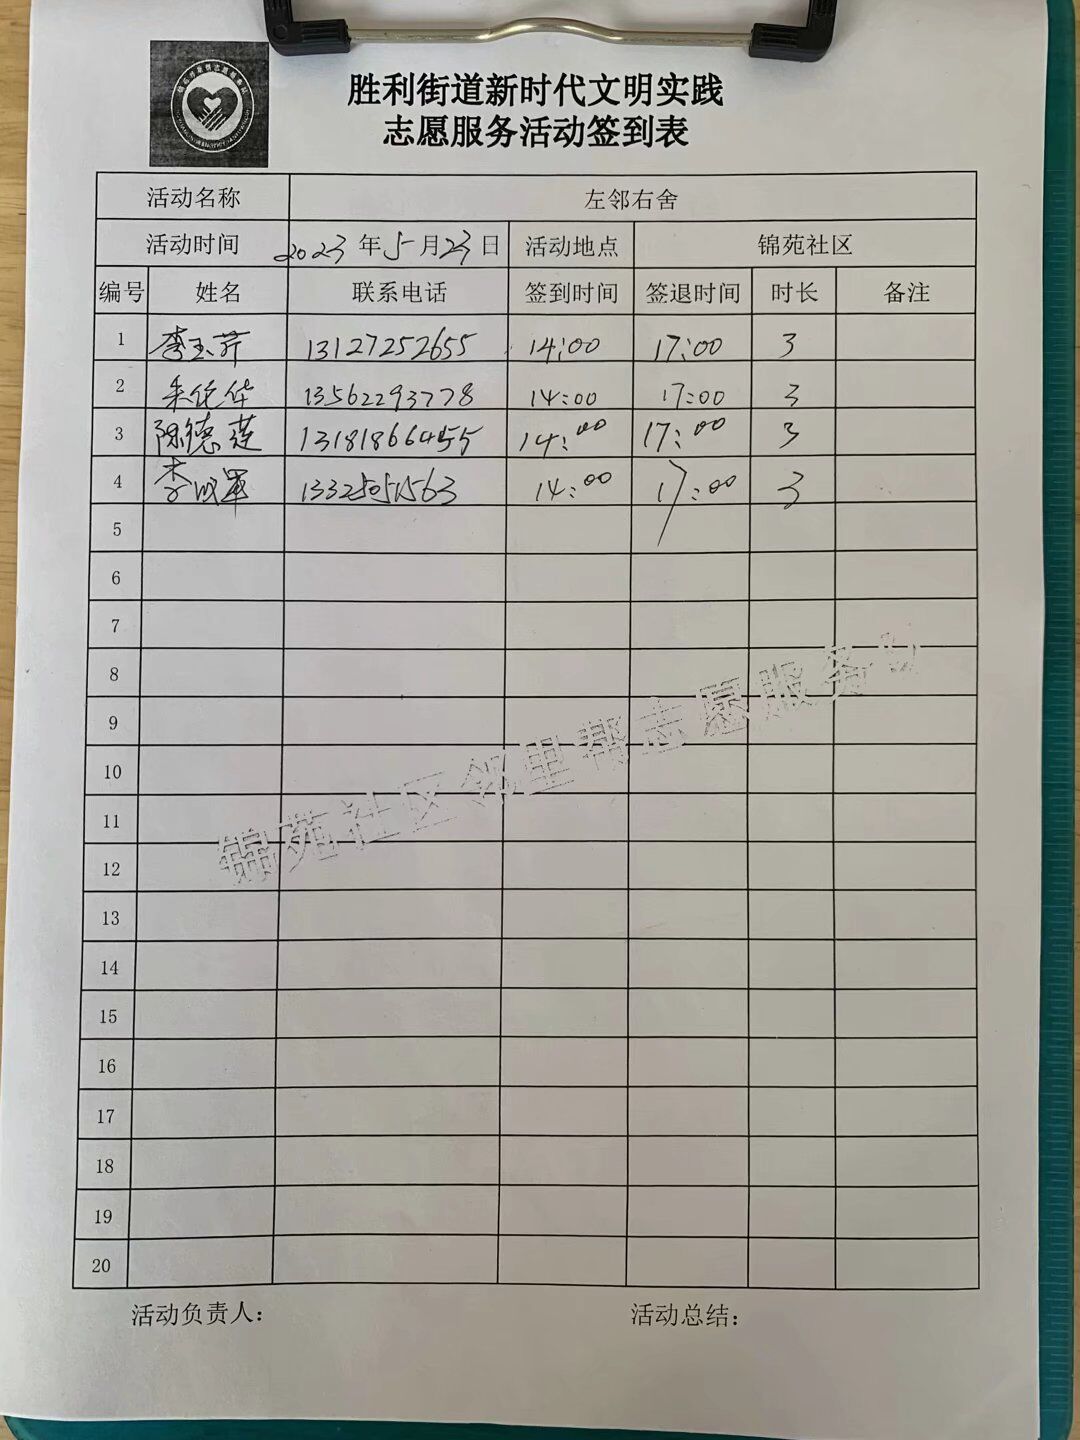 胜利街道新时代文明实践
志愿服务活动签到表
活动名称 左邻右舍
活动时间 2023年5月23日 活动地点 锦苑社区
编号 姓名 联系电话 签到时间 签退时间 时长 备注
1 李玉芹 13127252655 14:00 17:00 3
2 13562293778 14:00 17:00 3
3 陈德莲 13181866455 14:00 17:00 3
4 李成军 14:00 17:00 3
5
6
7
8
9
10
11
12
13
14
15
16
17
18
19
20
锦苑社区邻里帮志愿服务
活动负责人:
活动总结: